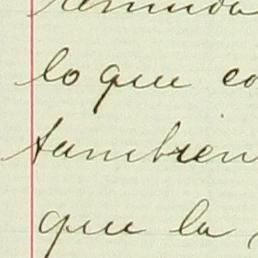 lo que
tambien
que la